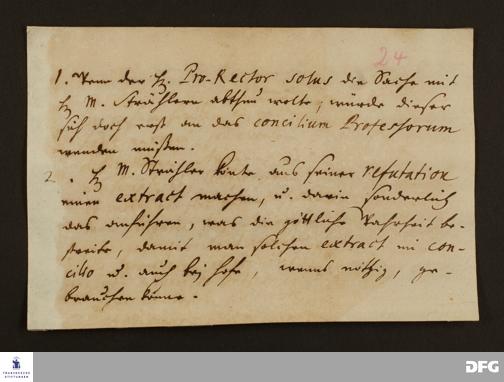 24
1. Wenn der H. Pro-Rector solus die Sache mit
H. M. Strählern abthun wolte, würde dieser
sich doch erst an das concilium Professorum
wenden müßen.
2. H. M. Strähler könte aus seiner refutation
einen extract machen, u. darin sonderlich
das anführen, was die göttliche Wahrheit be-
streite, damit man solchen extract im con-
cilio u. auch bei Hofe, wenns nöthig, ge-
brauchen könne.
FRANCKESCHE
STIFTUNGEN
DFG